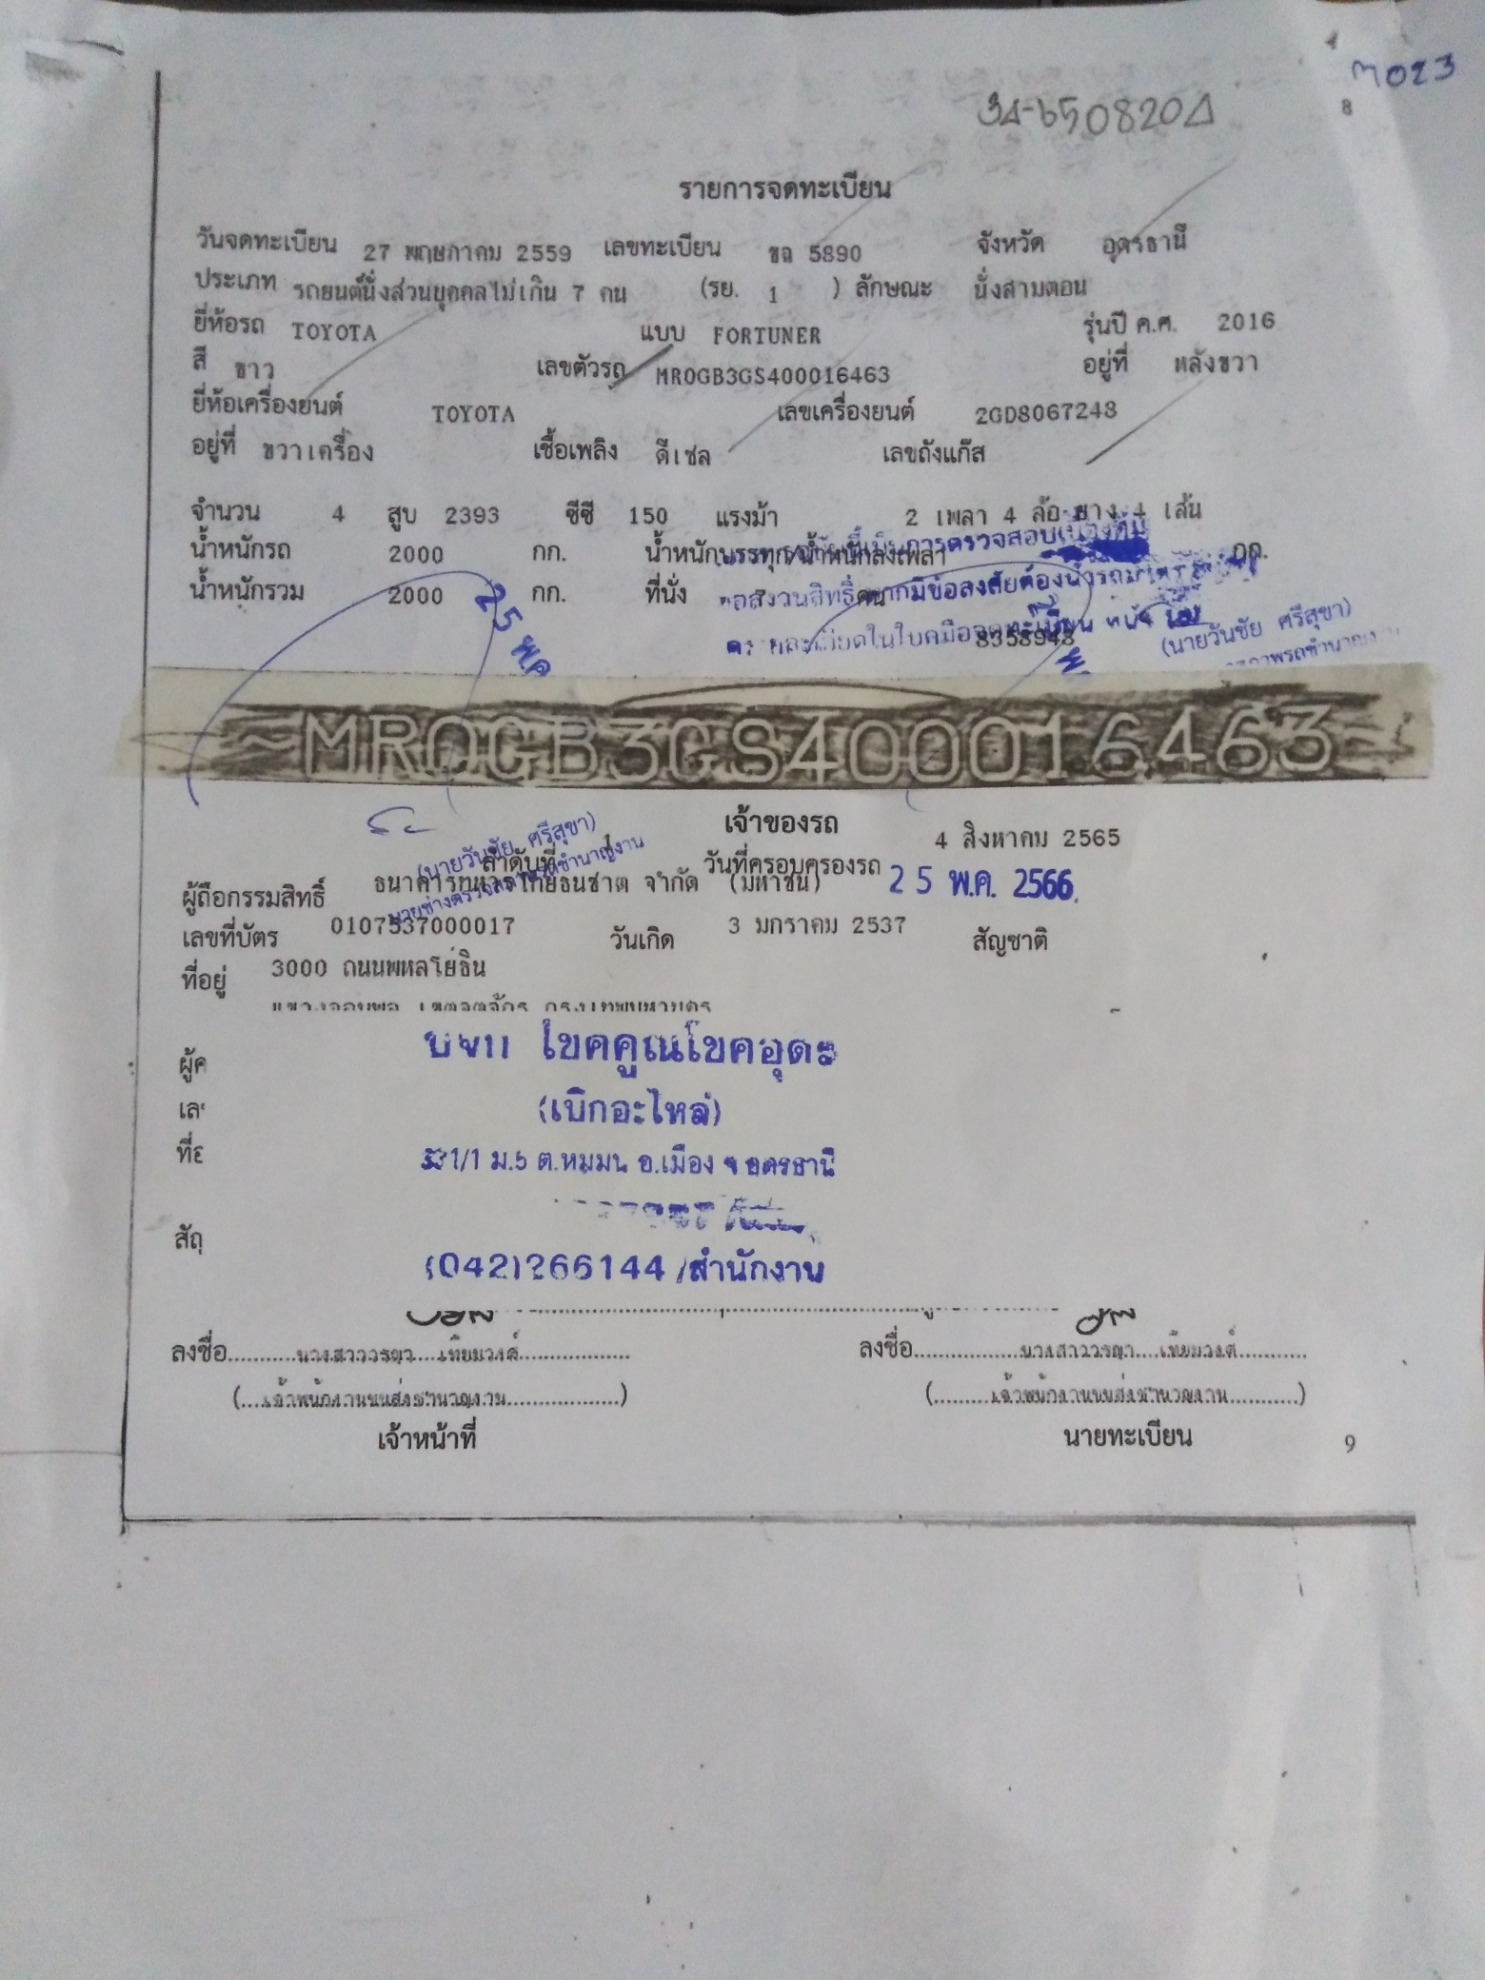 ຕ023
34-650820Δ
8
รายการจดทะเบียน
วันจดทะเบียน 27 พฤษภาคม 2559 เลขทะเบียน ขฉ 5890 จังหวัด อุดรธานี
ประเภท รถยนต์นั่งส่วนบุคคลไม่เกิน 7 คน (รย. 1 ) ลักษณะ นั่งสามตอน
ยี่ห้อรถ TOYOTA แบบ FORTUNER รุ่นปี ค.ศ. 2016
สี ขาว เลขตัวรถ MR0GB3GS400016463 อยู่ที่ หลังขวา
ยี่ห้อเครื่องยนต์ TOYOTA เลขเครื่องยนต์ 2GD8067248
อยู่ที่ ขวาเครื่อง เชื้อเพลิง ดีเซล เลขถังแก๊ส
จำนวน 4 สูบ 2393 ซีซี 150 แรงม้า 2 เพลา 4 ล้อ ยาง 4 เส้น
น้ำหนักรถ 2000 กก. น้ำหนักบรรทุก/น้ำหนักลงเพลา กก.
น้ำหนักรวม 2000 กก. ที่นั่ง 7 คน
8358948
25 พ.ค.
(นายวันชัย ศรีสุขา)
MR0GB3GS400016463
เจ้าของรถ
ลำดับที่ 1 วันที่ครอบครองรถ 4 สิงหาคม 2565
(นายวันชัย ศรีสุขา)
นายช่างตรวจสภาพรถชำนาญงาน
25 พ.ค. 2566
ผู้ถือกรรมสิทธิ์ ธนาคารทหารไทยธนชาต จำกัด (มหาชน)
เลขที่บัตร 0107537000017 วันเกิด 3 มกราคม 2537 สัญชาติ
ที่อยู่ 3000 ถนนพหลโยธิน
แขวงจอมพล เขตจตุจักร กรุงเทพมหานคร
โชคคูณโชคอุดร
(เบิกอะไหล่)
1/1 ม.5 ต.หมูม่น อ.เมือง จ.อุดรธานี
(042)266144/สำนักงาน
ลงชื่อ นางสาววรญา เทียมวงศ์ ลงชื่อ นางสาววรญา เทียมวงศ์
(เจ้าพนักงานขนส่งชำนาญงาน) (เจ้าพนักงานขนส่งชำนาญงาน)
เจ้าหน้าที่ นายทะเบียน 9